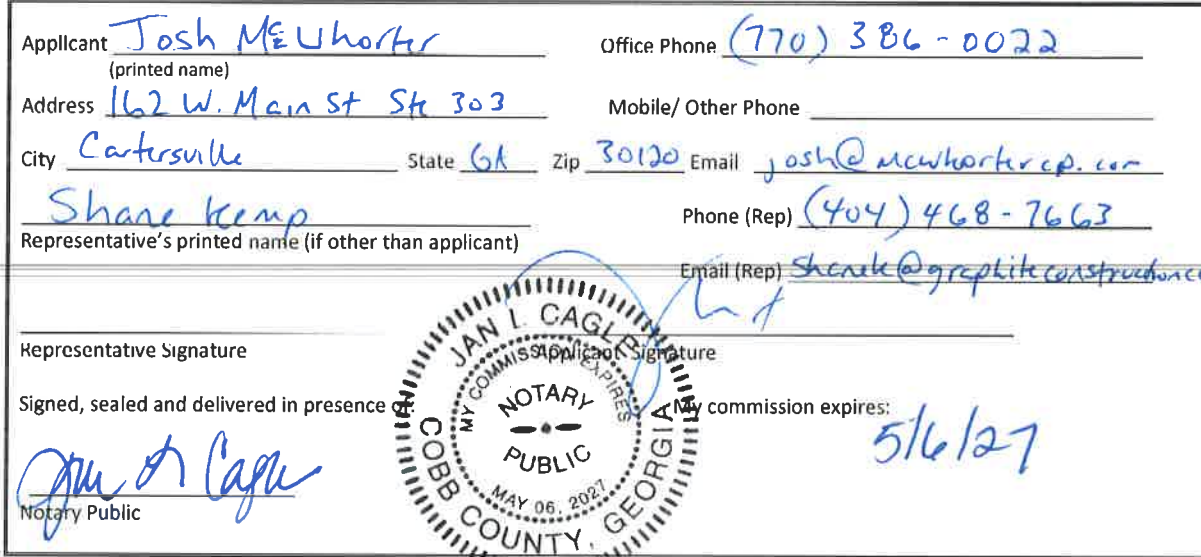 Applicant Josh McWhorter Office Phone (770) 386-0022
(printed name)
Address 162 W. Main St Ste 303 Mobile/ Other Phone
City Cartersville State GA Zip 30120 Email josh@mcwhortercp.com
Shane Kemp Phone (Rep) (404) 468-7663
Representative's printed name (if other than applicant)
Email (Rep) shanek@graphiteconstruction
Representative Signature Applicant Signature
Signed, sealed and delivered in presence of: My commission expires:
5/6/27
Notary Public
JAN L. CAGLE
MY COMMISSION EXPIRES
NOTARY
PUBLIC
MAY 06, 2027
COBB COUNTY, GEORGIA